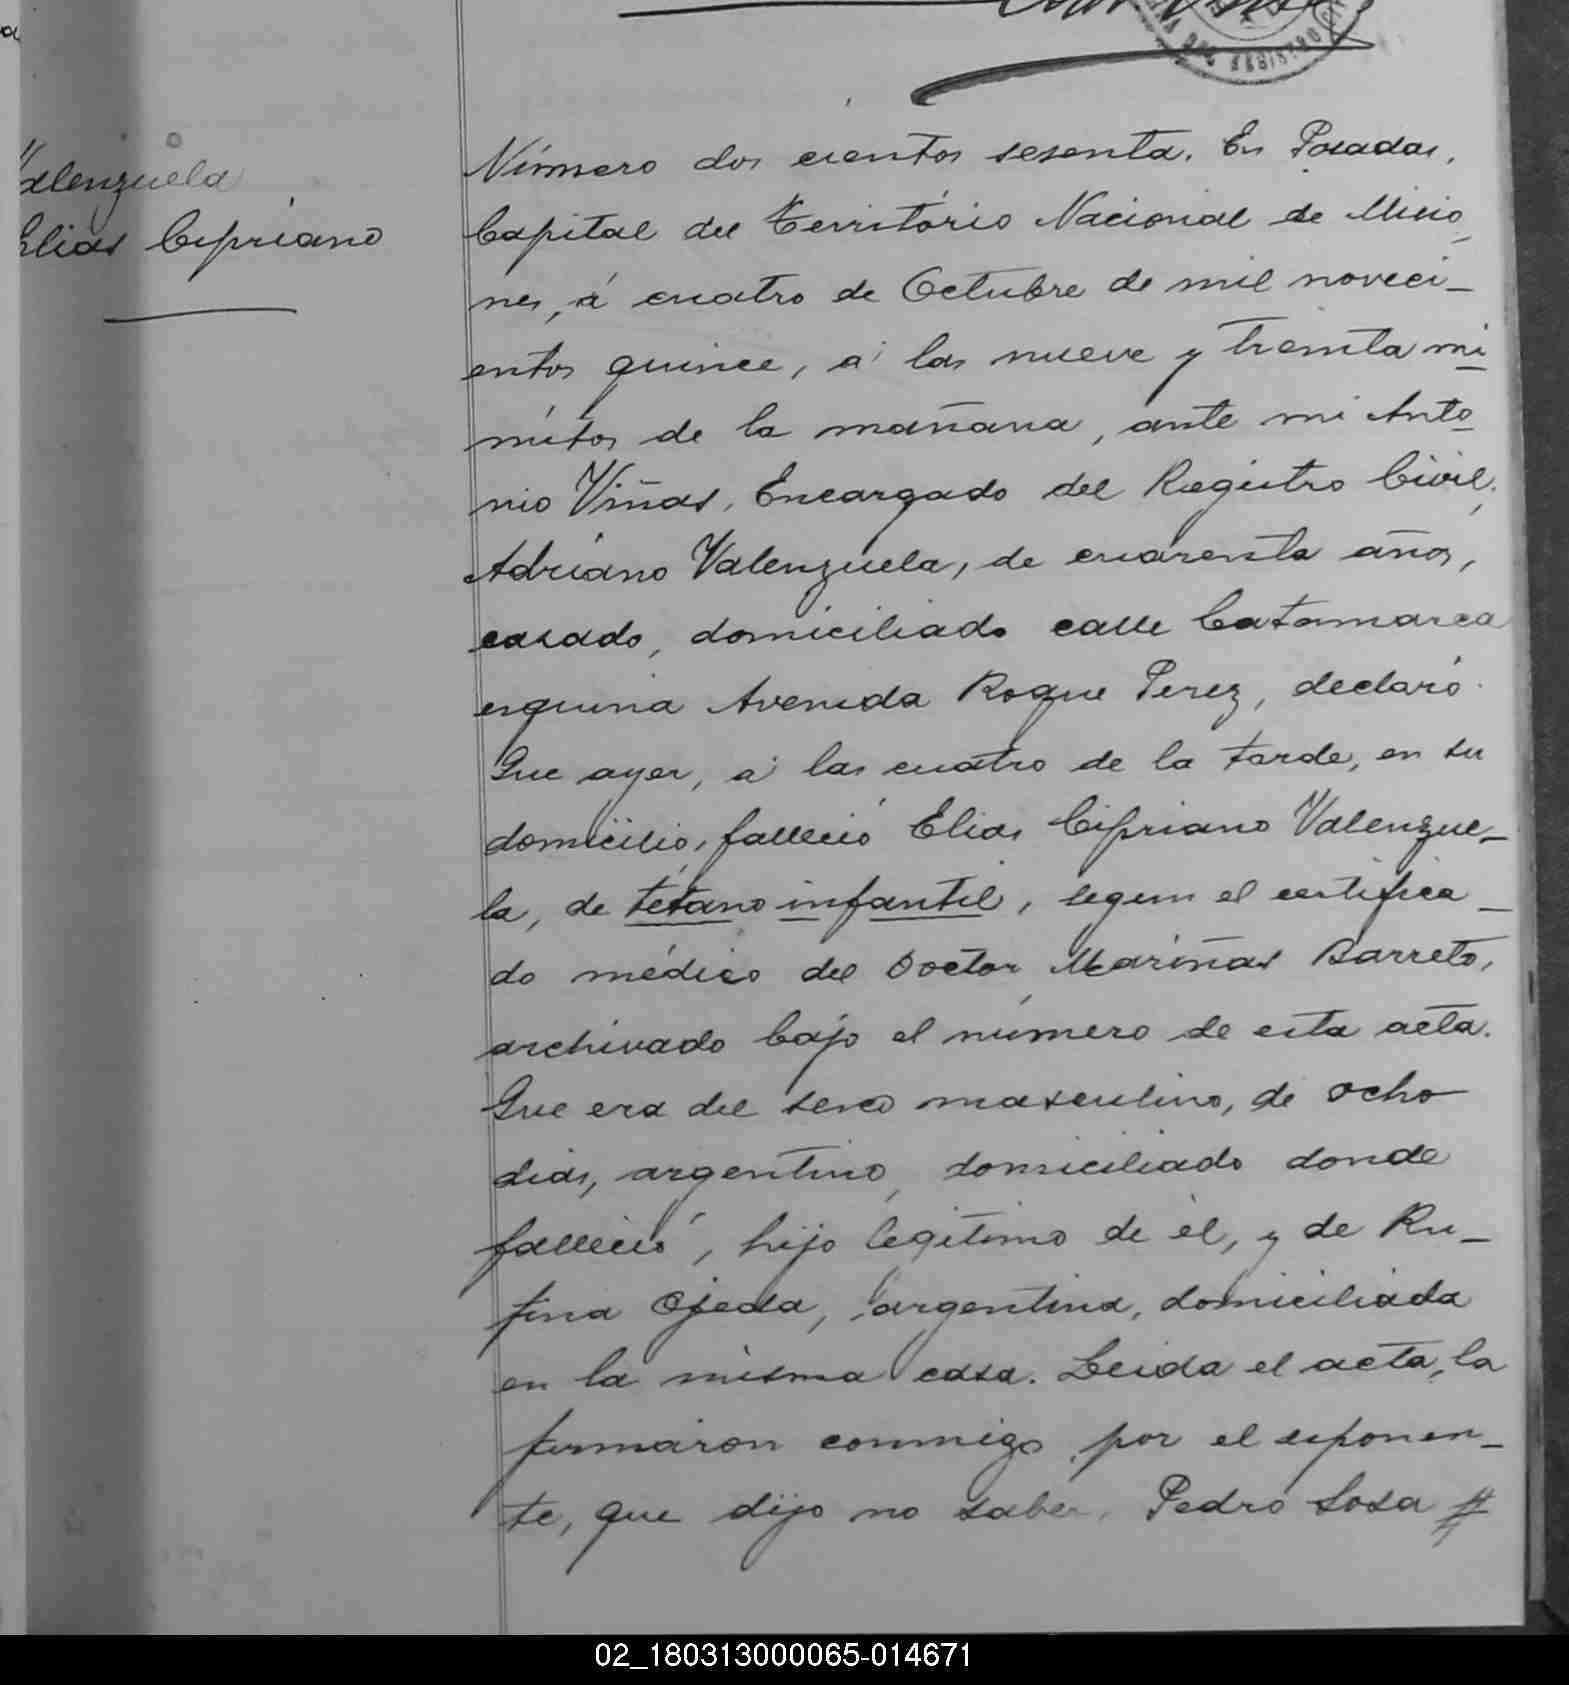 Valenzuela
Elias Cipriano
Número dos cientos sesenta. En Posadas,
Capital del Território Nacional de Misio
nes, á cuatro de Octubre de mil noveci-
entos quince, a las nueve y treinta mi
nútos de la mañana, ante mi Anto
nio Viñas, Encargado del Registro Civil,
Adriano Valenzuela, de cuarenta años,
casado, domiciliado calle Catamarca
esquina Avenida Roque Perez, declaró:
Que ayer, a las cuatro de la tarde, en su
domicilio, falleció Elias Cipriano Valenzue-
la, de tétano infantil, segun el certifica-
do médico del Doctor Mariñas Barreto,
archivado bajo el número de esta acta.
Que era del sexo masculino, de ocho
dias, argentino, domiciliado donde
falleció, hijo legítimo de él, y de Ru-
fina Ojeda, argentina, domiciliada
en la misma casa. Leida el acta, la
firmaron conmigo por el exponen-
te, que dijo no saber, Pedro Sosa
02_180313000065-014671